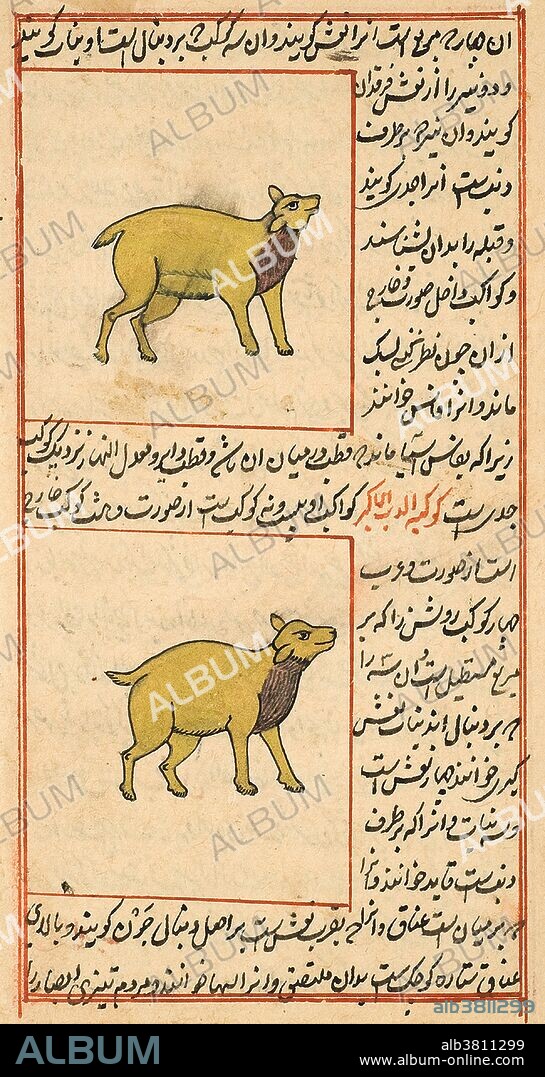 ان چهار که مربع است انرا نعش کویند و ان سه کوکب که بر دنبال است او بنات کویند
و دو نیر را از نعش فرقدان
کویند و ان نیر که بر طرف
دنبست انرا جدی کویند
و قبله را بدان بشناسند
و کواکب داخل صورت و خارج
از ان چون نظر کنی بسبک
ماند و انرا فاس خوانند
زیرا که بفاس اسیا ماند و قطب در میان ان باشد و قطب دایره معدل النهار نزدیک کوکب
جدی است کوکبه الدب الاکبر کواکب او بیست و نه کوکب است از صورت و هشت کوکب خارج
است از صورت و عرب
چهار کوکب روشن را که بر
مربع مستطیل است و ان سه را
که بر دنبال اند بنات نعش
کبری خوانند چهار نعش است
و سه بنات و انرا که بر طرف
دنبست قاید خوانند و انرا
که بر میان است عناق و انرا که بقرب نعش است بر اصل دنبال جون کویند و بالای
عناق ستاره کوچک است بدان ملتصق و انرا السها خوانند و مردم تیزی ابصار را
ALBUM
alb3811299
ALBUM
alb3811299
www.album-online.com